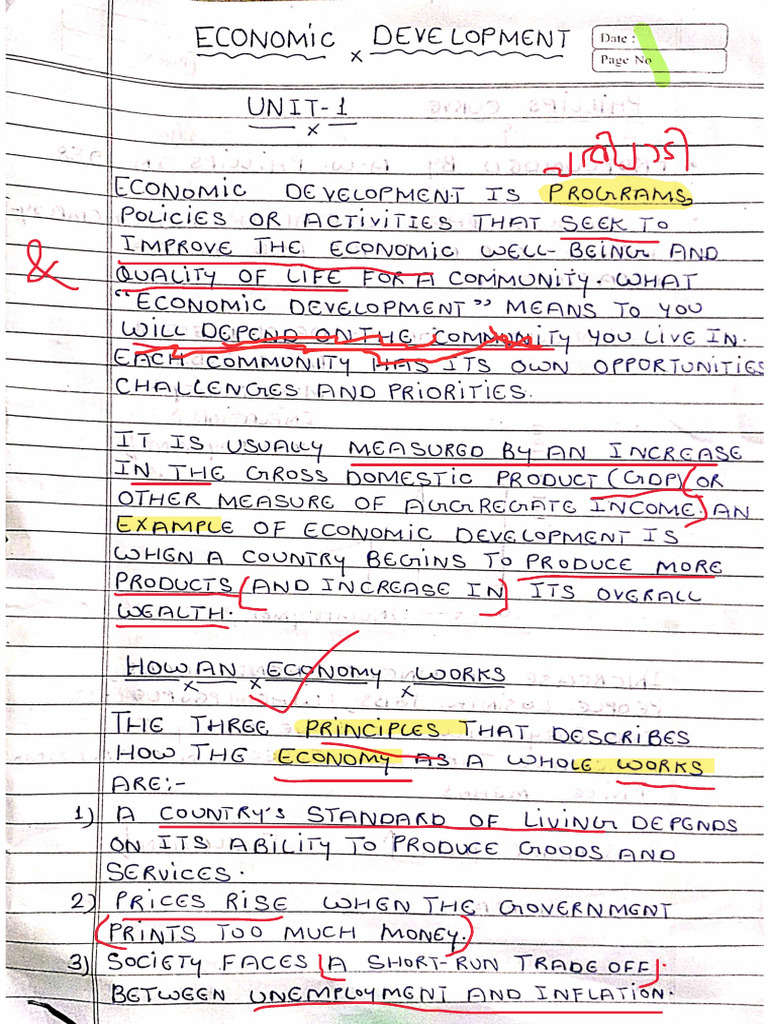 ECONOMIC DEVELOPMENT
Date :
Page No
UNIT-1
ECONOMIC DEVELOPMENT IS PROGRAMS,
POLICIES OR ACTIVITIES THAT SEEK TO
IMPROVE THE ECONOMIC WELL-BEING AND
&
QUALITY OF LIFE FOR A COMMUNITY. WHAT
"ECONOMIC DEVELOPMENT" MEANS TO YOU
WILL DEPEND ON THE COMMUNITY YOU LIVE IN.
EACH COMMUNITY HAS ITS OWN OPPORTUNITIES
CHALLENGES AND PRIORITIES.
IT IS USUALLY MEASURED BY AN INCREASE
IN THE GROSS DOMESTIC PRODUCT (GDP) (OR
OTHER MEASURE OF AGGREGATE INCOME.) AN
EXAMPLE OF ECONOMIC DEVELOPMENT IS
WHEN A COUNTRY BEGINS TO PRODUCE MORE
PRODUCTS [AND INCREASE IN] ITS OVERALL
WEALTH.
HOW AN ECONOMY WORKS
THE THREE PRINCIPLES THAT DESCRIBES
HOW THE ECONOMY AS A WHOLE WORKS
ARE:-
1) A COUNTRY'S STANDARD OF LIVING DEPENDS
ON ITS ABILITY TO PRODUCE GOODS AND
SERVICES.
2) PRICES RISE WHEN THE GOVERNMENT
(PRINTS TOO MUCH MONEY.)
3) SOCIETY FACES [A SHORT-RUN TRADE OFF].
BETWEEN UNEMPLOYMENT AND INFLATION.